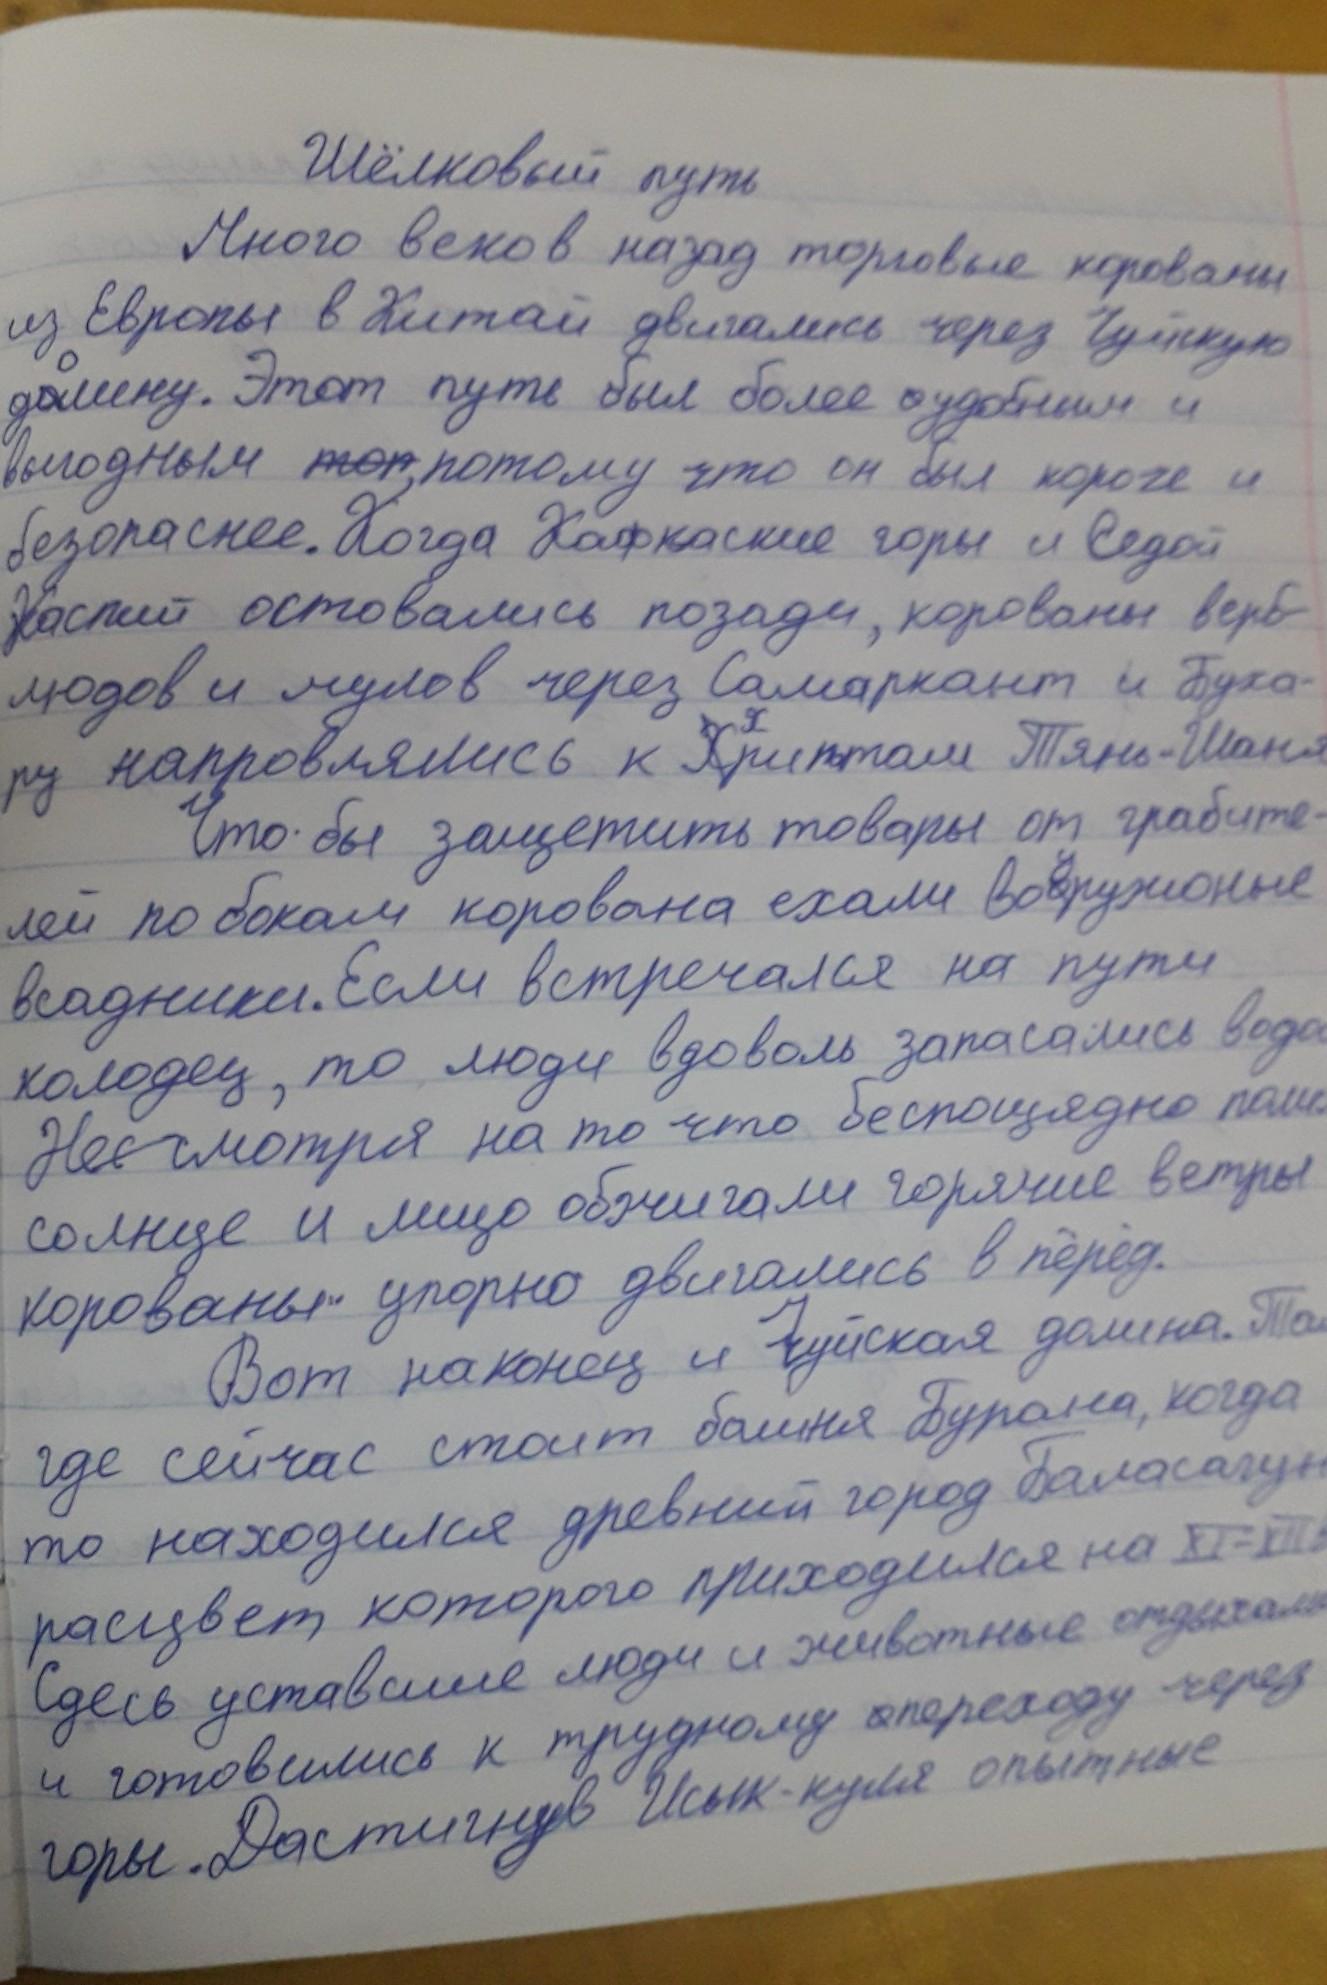 Шёлковый путь
Много веков назад торговые корованы
из Европы в Китай двигались через Чуйскую
долину. Этот путь был более удобным и
выгодным, потому что он был короче и
безопаснее. Когда Кафкаские горы и Седой
Каспий остовались позади, корованы верб-
людов и мулов через Самаркант и Буха-
ру напровлялись к Хриптам Тянь-Шаня
Что бы защетить товары от грабите-
лей по бокам корована ехали вооружоные
всадники. Если встречался на пути
колодец, то люди вдоволь запасались
Несмотря на то что беспощядно
солнце и лицо обжигали горячие ветры
корованы упорно двигались в перёд.
Вот наконец и Чуйская долина.
где сейчас стоит башня Бурана, когда
то находился древний город Баласагун
расцвет, которого приходился на XI-XII
Сдесь уставшие люди и животные отдыхали
и готовились к трудному переходу через
горы. Дастигнув Исык-куля опытные